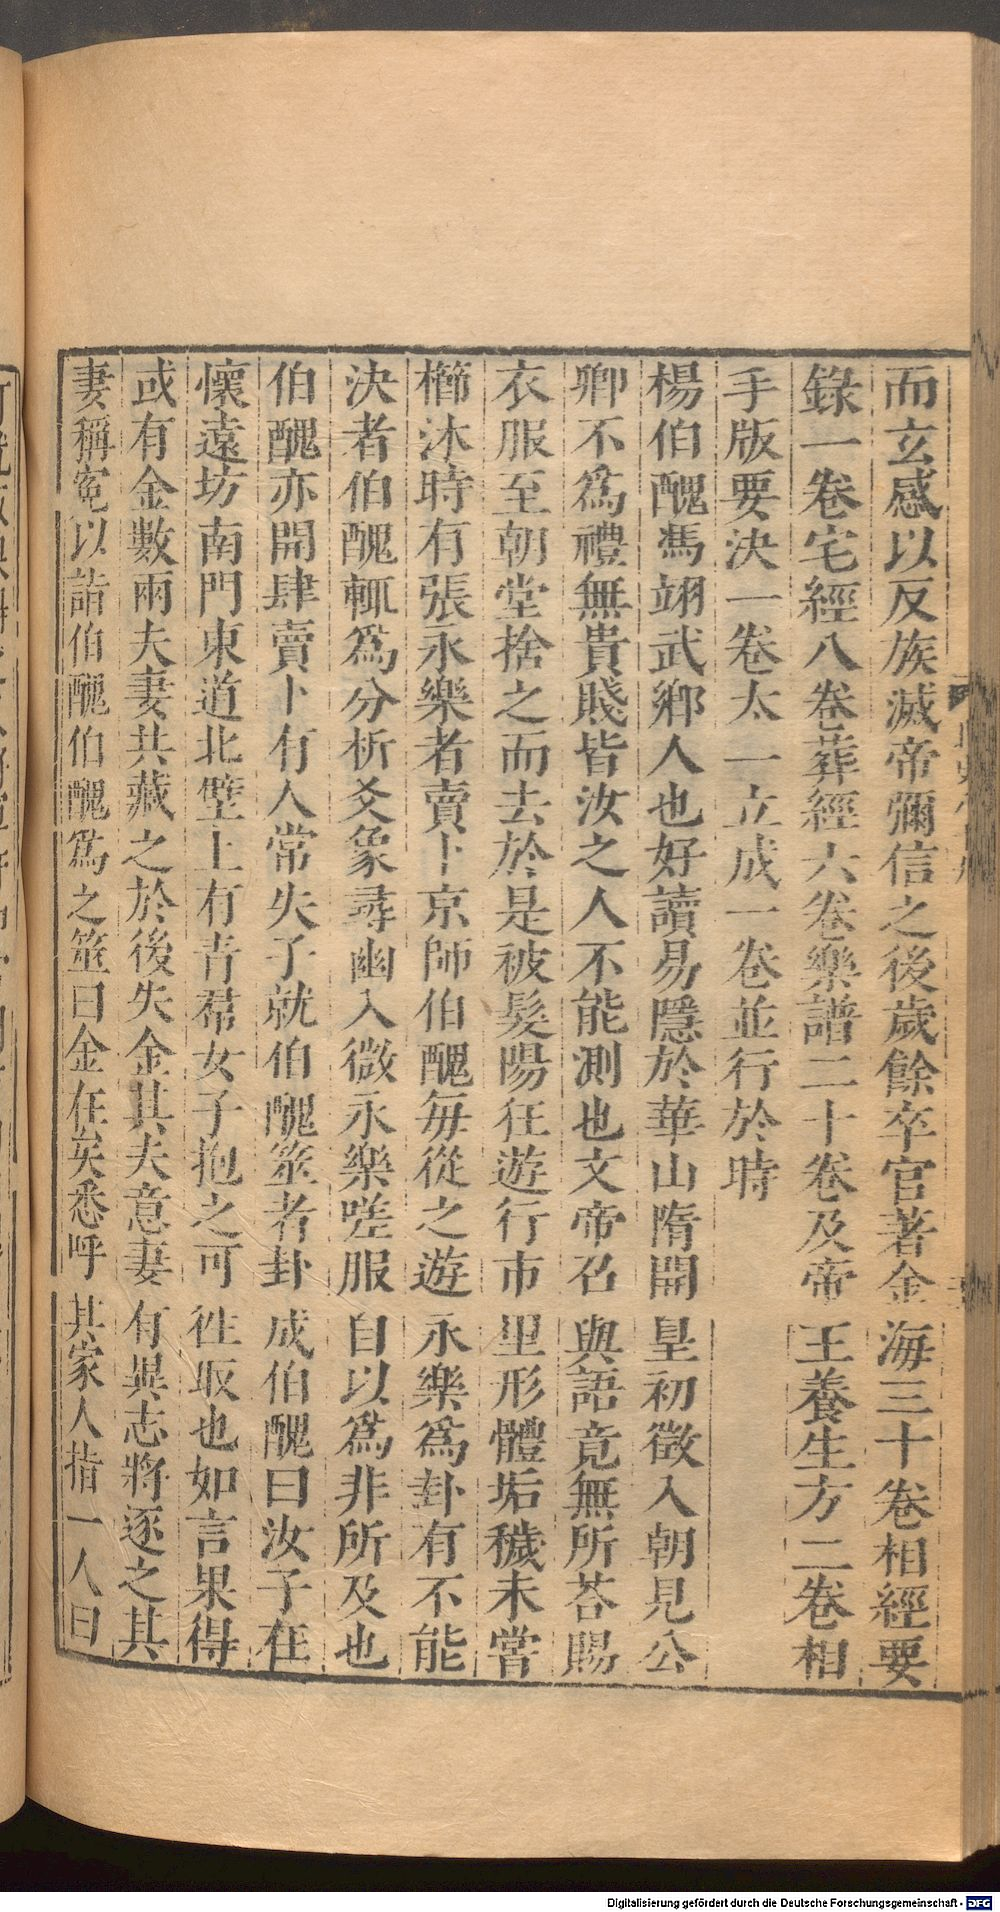 而玄感以反族滅帝彌信之後歲餘卒官著金海三十卷相經要
錄一卷宅經八卷葬經六卷樂譜二十卷及帝王養生方二卷相
手版要決一卷太一立成一卷並行於時
楊伯醜馮翊武鄉人也好讀易隱於華山隋開皇初徵入朝見公
卿不為禮無貴賤皆汝之人不能測也文帝召與語竟無所荅賜
衣服至朝堂捨之而去於是被髮陽狂遊行市里形體垢穢未嘗
櫛沐時有張永樂者賣卜京師伯醜每從之遊永樂為卦有不能
決者伯醜輒為分析爻象尋幽入微永樂嗟服自以為非所及也
伯醜亦開肆賣卜有人常失子就伯醜筮者卦成伯醜曰汝子在
懷遠坊南門東道北壁上有青帬女子抱之可往取也如言果得
或有金數兩夫妻共藏之於後失金其夫意妻有異志將逐之其
妻稱冤以詣伯醜伯醜為之筮曰金在矣悉呼其家人指一人曰
Digitalisierung gefördert durch die Deutsche Forschungsgemeinschaft - DFG